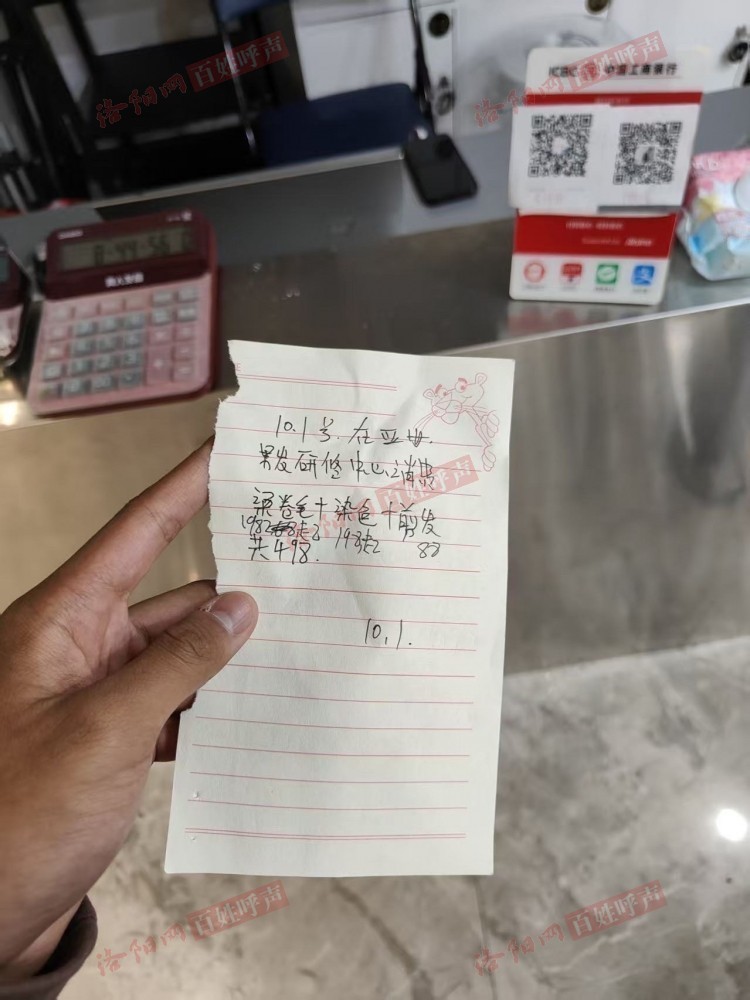 洛阳网 百姓呼声
洛阳网 百姓呼声
ICBC 中国工商银行
10.1号.在亚世.
男发研修中心消费
梁卷毛+染色+剪发
198起 198起 88
共498.
10.1.
洛阳网 百姓呼声
洛阳网 百姓呼声
洛阳网 百姓呼声